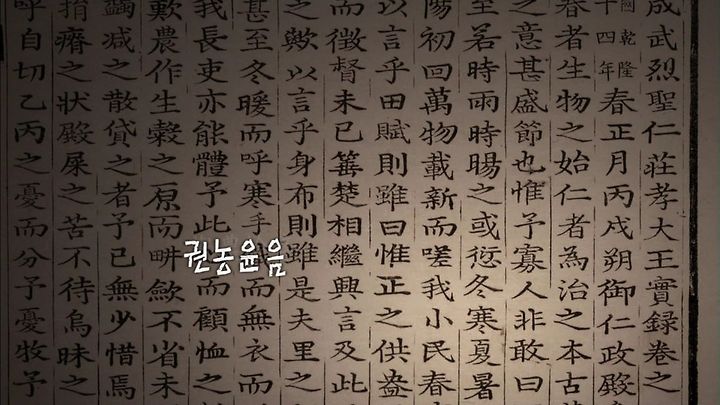 成武烈聖仁莊孝大王實錄卷之
國乾隆
十四年
春正月丙戌朔御仁政殿
春者生物之始仁者為治之本古
之意甚盛節也惟予寡人非敢曰
至若時雨時暘之或愆冬寒夏暑
陽初回萬物載新而嗟我小民春
以言乎田賦則雖曰惟正之供盎
而徵督未已篝楚相繼興言及此
之歟以言乎身布則雖是夫里之
甚至冬暖而呼寒乎而無衣而
我長吏亦能體予此而顧恤之
歉農作生穀之原而畊歛不省未
蠲減之散貸之者予已無少惜焉
捎瘠之狀殿屎之苦不待烏昧之
呼自切乙丙之憂而分予憂牧予
권농윤음